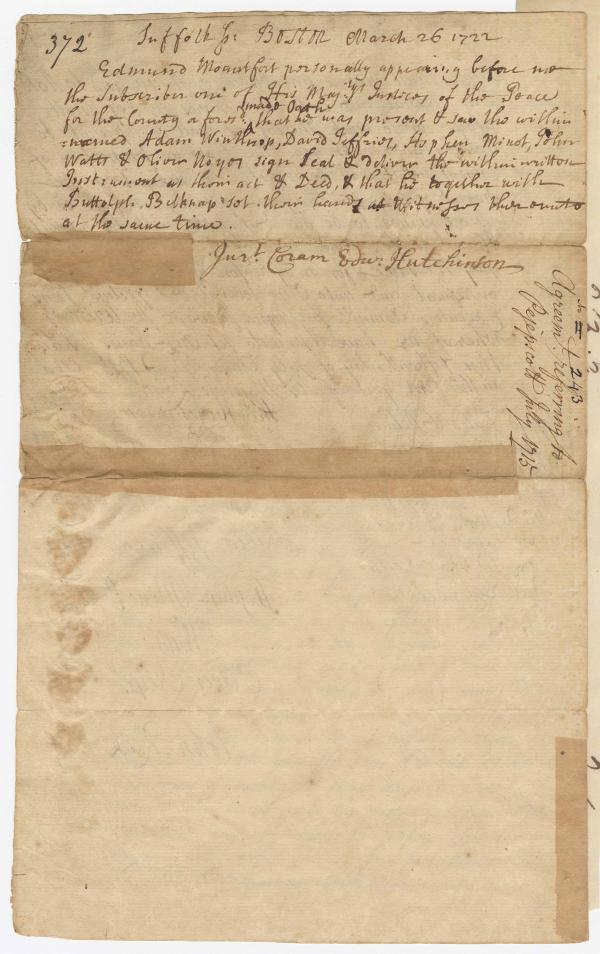 372
Suffolk Ss: Boston March 26 1722
Edmund Mountfort personally appearing before me
the Subscriber one of His Maj:tys Justices of the Peace
for the County afores:d made Oath that he was present & saw the within
named Adam Winthrop, David Jeffries, Stephen Minot, John
Watts & Oliver Noyes sign Seal & deliver the within written
Instrument as their act & Deed, & that he together with
Buttolph Belknap set their hands as Witnesses thereunto
at the same time.
Jur.t Coram Edw: Hutchinson
243.
Agreem.t referring to
Pejepscott July 1715